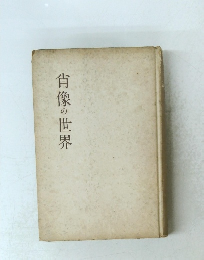 肖像の世界